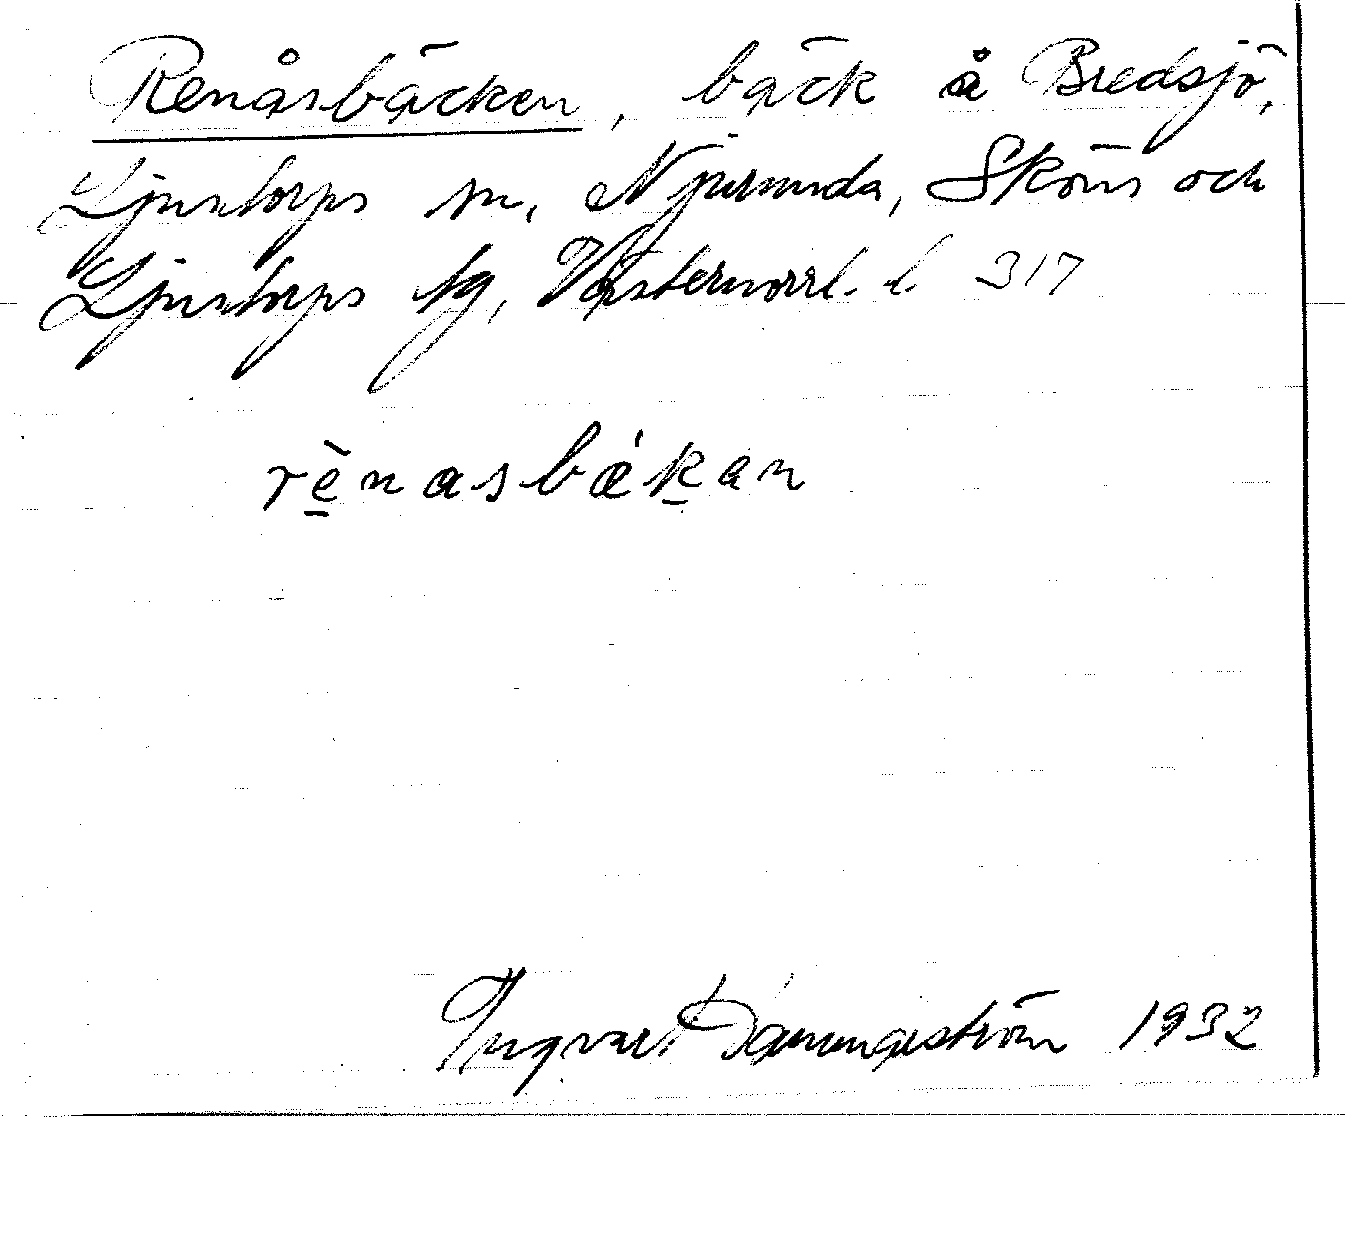 Renåsbäcken, bäck å Bredsjö,
Ljustorps sn, Njurunda, Sköns och
Ljustorps tg, Västernorrl. l. 317
rènasbǽkan
Ingvar Dammgiström 1932